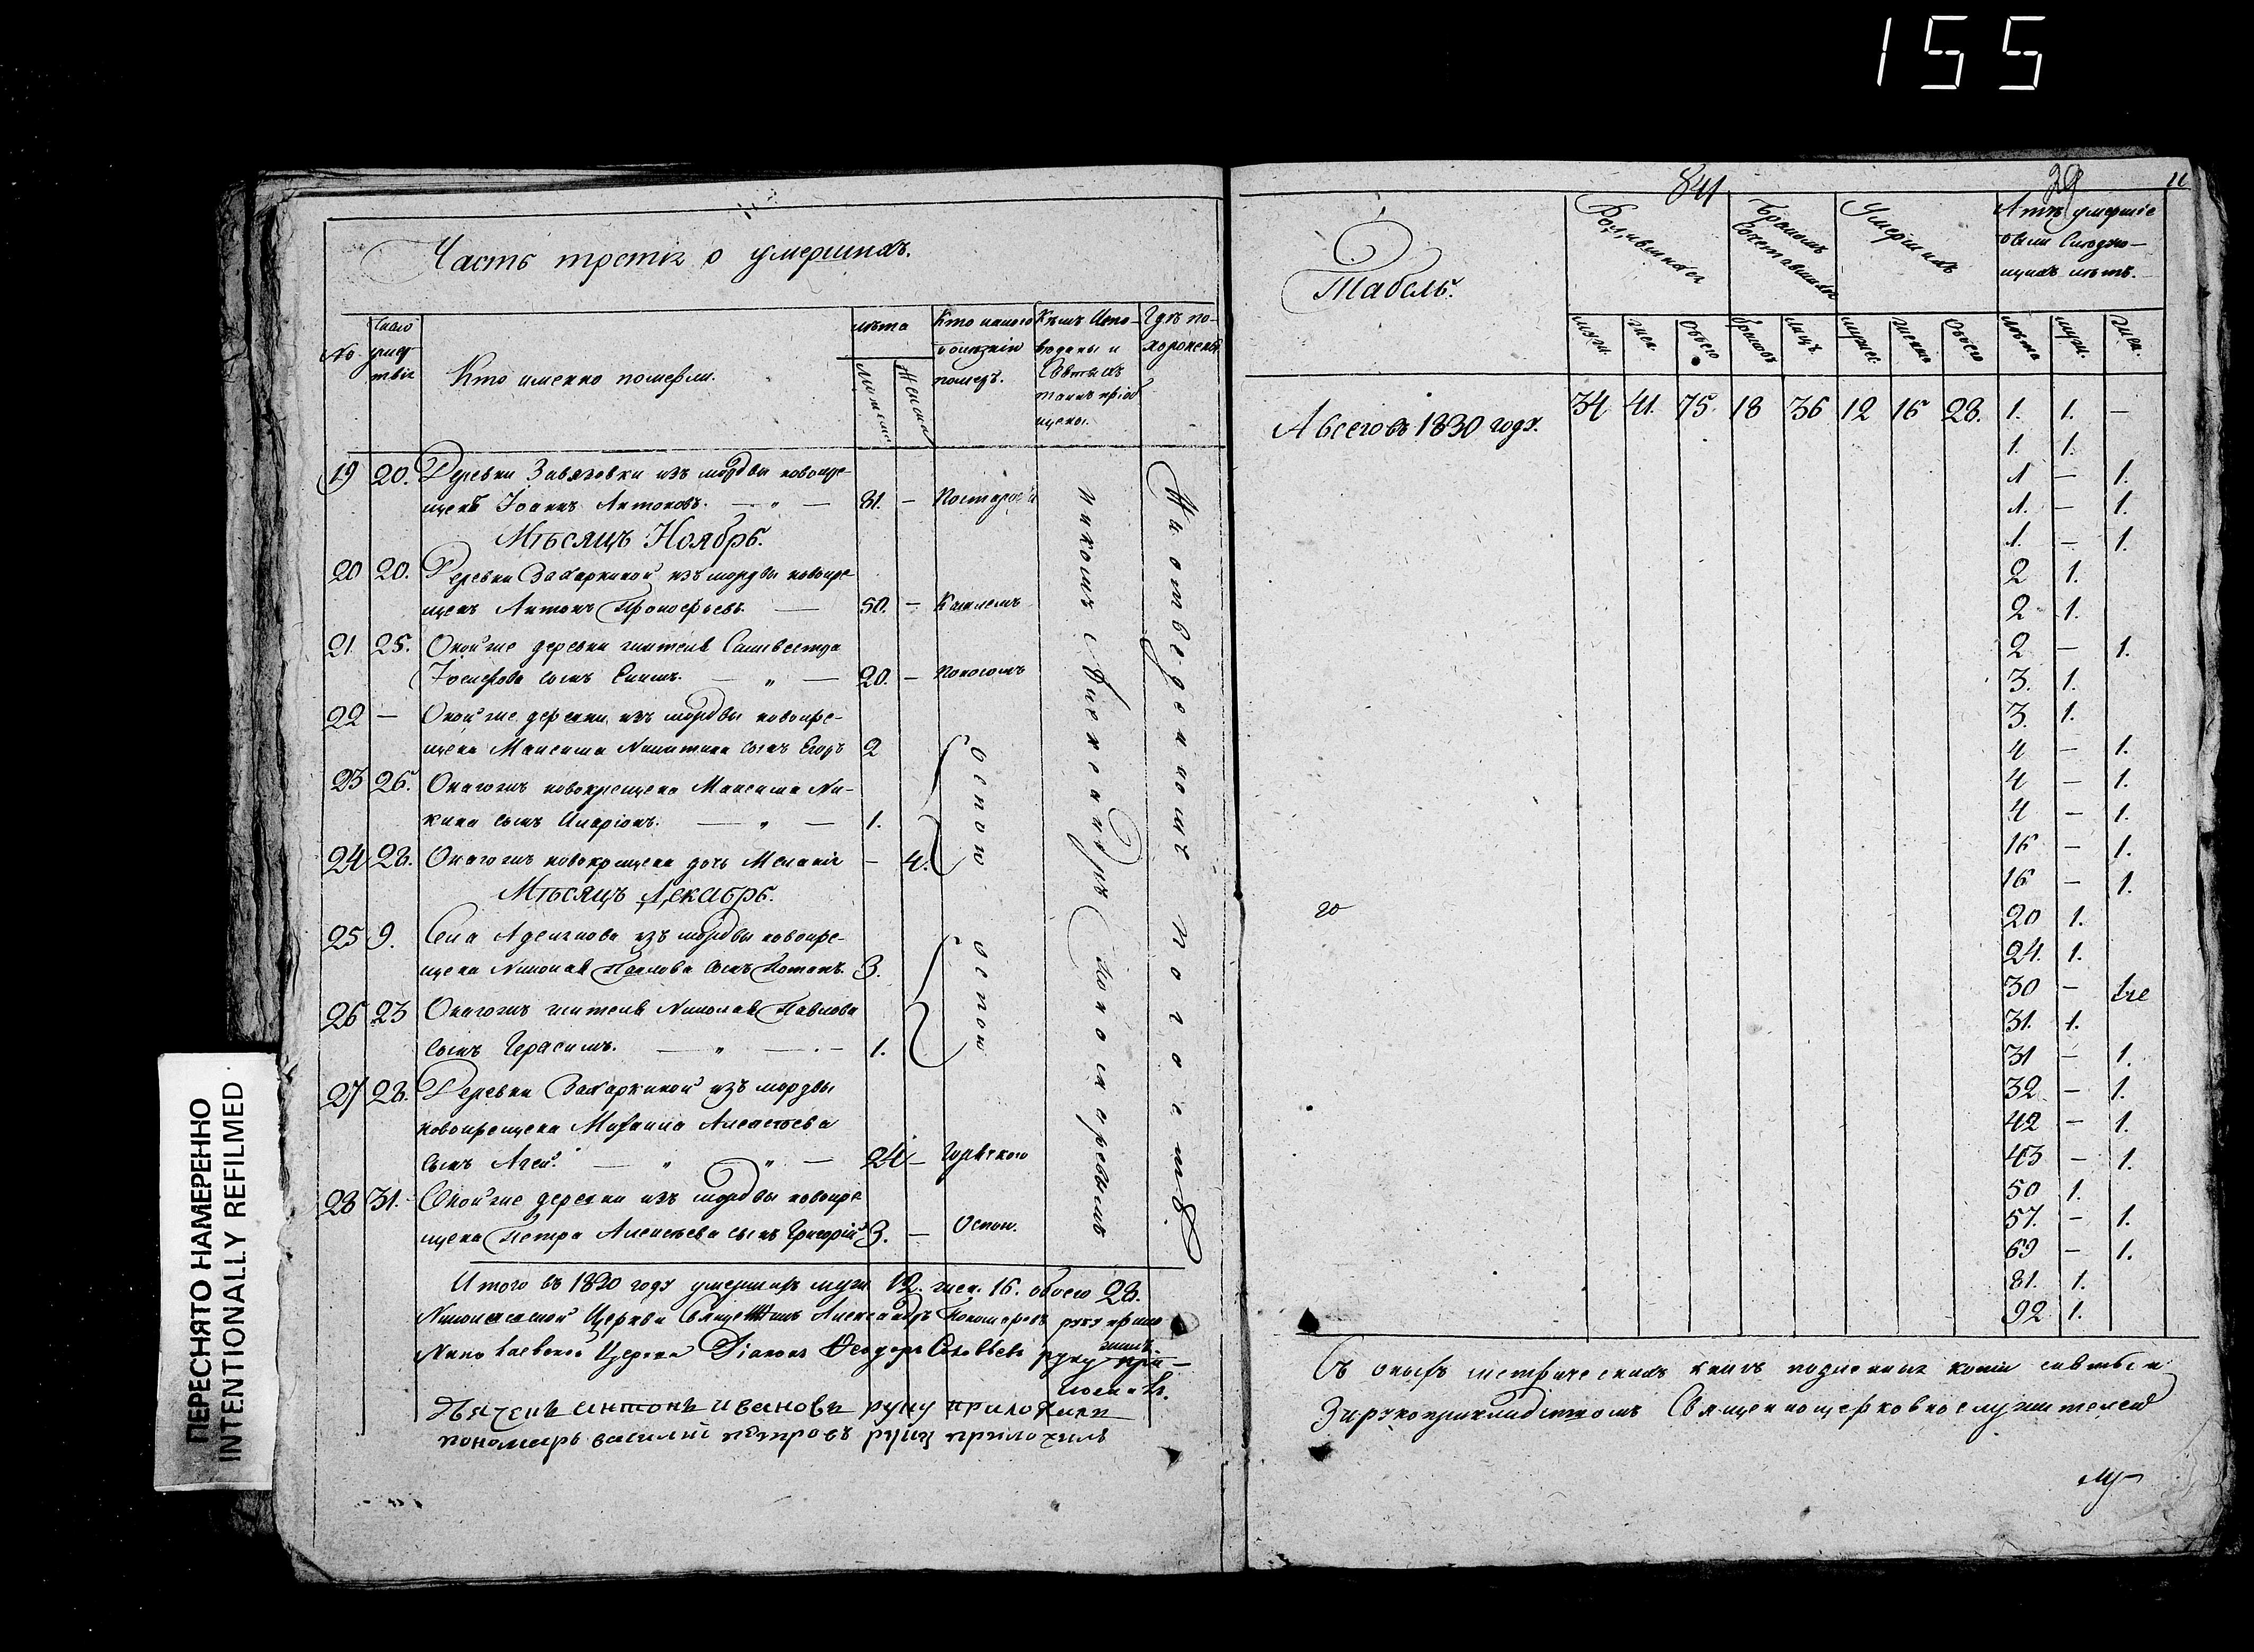 155
Часть третія о умершихъ.
№
Число
умер
твія
Кто именно померли.
лѣта
Мужеска
Женска
Кто какою
болѣзнію
померъ.
Кѣмъ Испо-
вѣданы и
Святыхъ
таинъ пріоб
щены.
Гдѣ по-
хоронены.
19 20. Деревни Завязовки изъ мордвы новокре-
щенъ Іоаннъ Антоновъ. — „ — 81. —
Мѣсяцъ Ноябрь.
20 20. Деревни Захаркиной изъ мордвы новокре
щенъ Антонъ Прокофьевъ. — 50. — Кашлемъ
21 25. Оной же деревни жителя Сильвестра
сынъ — „ — 20. — Поносомъ
22 — Оной же деревни изъ мордвы новокре-
щена Максима Никитина сынъ Егоръ 2
23 26. Онагожъ новокрещена Максима Ни-
кина сынъ Иларіонъ. — „ — 1.
24 28. Онагожъ новокрещена дочь Меланія — 4.
оспою
Мѣсяцъ Декабрь.
25 9. Села изъ мордвы новокре-
щена Николая Павлова сынъ Потапъ. 3.
26 23 Онагожъ жителя Николая Павлова
сынъ Герасимъ. — „ — 1.
оспою
27 28. Деревни Захаркиной изъ мордвы
новокрещена Михаила Алексѣева
сынъ — „ „ — 24 — Горячкою
28 31. Оной же деревни изъ мордвы новокре
щена Петра Алексѣева сынъ Григорій 3. — Оспою.
Священникомъ Александръ Пономаревымъ
На отведенномъ погостѣ
Итого въ 1830 году умершихъ муж. 12. жен. 16. обоего 28.
Николаевской Церкви Священникъ Александръ Пономаревъ руку прило
жилъ.
Николаевской Церкви Діаконъ Ѳеодоръ Соловьевъ руку при-
ложилъ.
Дьячекъ антонъ ивановъ руку приложилъ
пономарь василій петровъ руку приложилъ
ПЕРЕСНЯТО НАМЕРЕННО
INTENTIONALLY REFILMED
841
29
11
Табель.
Родившихся
Бракомъ
Сочетавшихся
Умершихъ
умершіе
были Слѣдую-
щихъ лѣтъ.
муж.
жен.
Обоего
браковъ
лицъ.
мужес.
женска
Обоего
лѣта
муж.
жен.
А всего въ 1830 году. 34 41. 75. 18 36 12 16 28. 1. 1. —
1. 1.
1 — 1.
1. — 1.
1. — 1.
2 1.
2 1.
2 — 1.
3. 1.
3. 1.
4 — 1.
4 — 1.
4 — 1.
16 — 1.
16 — 1.
20 1.
24. 1.
30 —
31. 1.
31 — 1.
32 — 1.
42 — 1.
43 — 1.
50 1.
57. — 1.
69 — 1.
81. 1.
92 1.
Съ оныхъ метрическихъ книгъ
За рукоприкладствомъ Священноцерковнослужителей